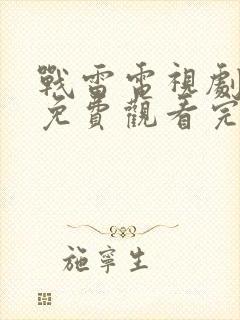 戰雷雷視劇
免費觀看完
施寧生